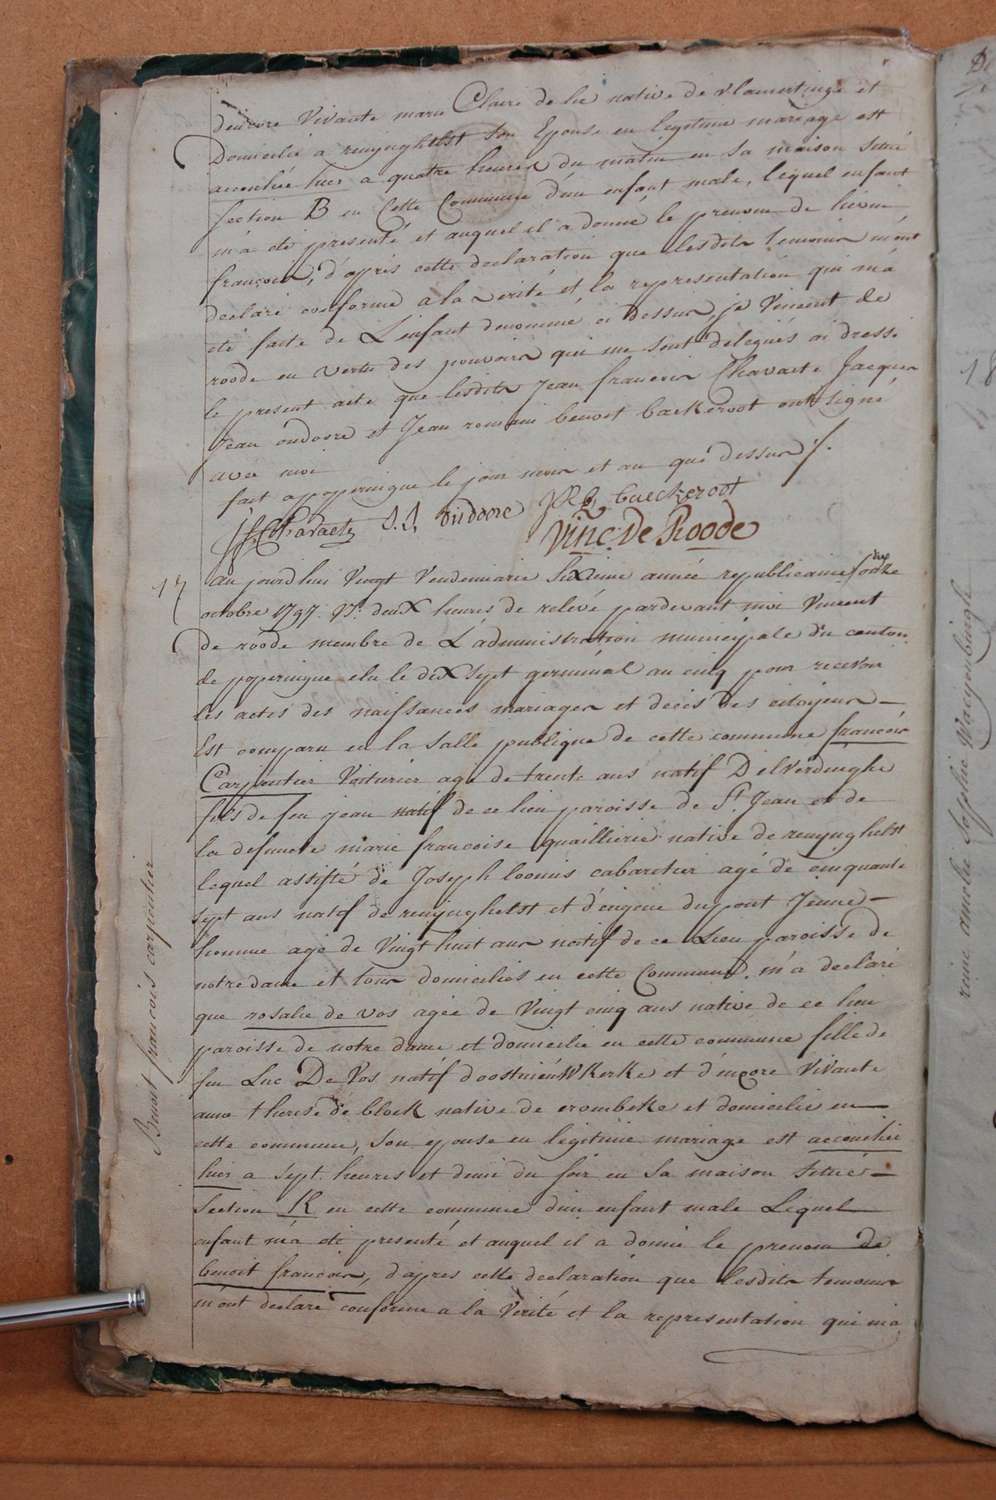 dencore Vivante marie Claire de lie native de vlamertinge et
Domicilié a renynghelst son Epouse en legitime mariage est
accouchée hier a quatre heures du matin en sa maison situé
section B en cette Commune d'un enfant male, lequel enfant
m'a été presenté et auquel il a donné le prenom de
françois, d'après cette declaration que lesdits temoins m'ont
declaré conforme a la verité et la representation qui m'a
été faite de L'enfant denommé ci dessus, je Vincent de
roode en vertu des pouvoirs qui me sont delegués ai dressé
le present acte que lesdits jean francois Chavaete Jacques
Jean oudoore et Jean romain benoit backeroot ont signé
avec moi
fait a poperingue le jour mois et an que dessus /.
J.f. Chavaete J.J. oudoore J R B baeckeroot
Vinc. De Roode
17
aujourdhui Vingt Vendemiaire Sixieme année republicaine onze
octobre 1797. V.s. deux heures de relevé pardevant moi Vincent
de roode membre de L'administration municipale du canton
de poperingue elu le dix sept germinal an cinq pour recevoir
les actes des naissances mariages et décés des citoyens —
Est comparu en la salle publique de cette commune francois
Carpentier Voiturier agé de trente ans natif D'elverdinghe
fils de feu jean natif de ce lieu paroisse de St. Jean et de
la defuncte marie francoise quaillierie native de renynghelst
lequel assisté de Joseph loonis cabaretier agé de cinquante
sept ans natif de renynghelst et d'eugene dupont Jeune —
homme agé de Vingt huit ans natif de ce Lieu paroisse de
notre dame et tous domiciliés en cette Commune, m'a declaré
que rosalie de vos agée de Vingt cinq ans native de ce lieu
paroisse de notre dame et domicilié en cette commune fille de
feu Luc De Vos natif d'oostnieuwkerke et d'encore Vivante
anne therese de block native de crombeke et domicilié en
cette commune, son epouse en legitime mariage est accouchée
hier a sept heures et demi du soir en sa maison situé —
section K en cette commune d'un enfant male Lequel
enfant m'a été presenté et auquel il a donné le prenom de
benoit francois, d'apres cette declaration que lesdits temoins
m'ont declaré conforme a la Verité et la representation qui m'a
Benoit francois carpentier
18
reine amelie Sophie